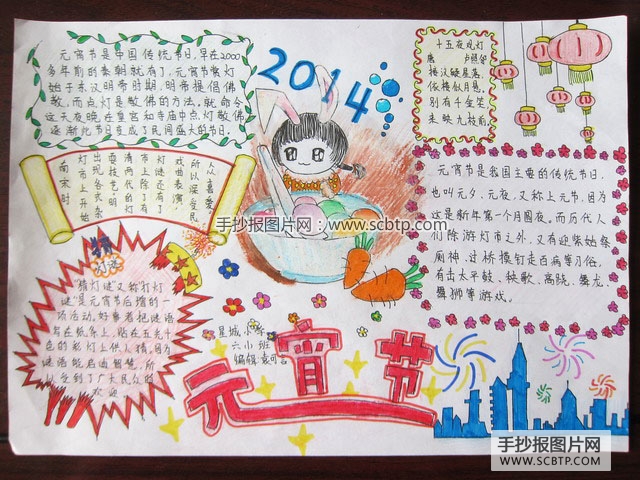 元宵节是中国传统节日,早在2000
多年前的秦朝就有了,元宵节赏灯
始于东汉明帝时期,明帝提倡佛
教,而点灯是敬佛的方法,就命令
这天夜晚在皇宫和寺庙中点灯敬佛
逐渐此节日变成了民间盛大的节日。
2014
十五夜观灯
唐 卢照邻
接汉疑星落,
依楼似月悬。
别有千金笑,
来映九枝前。
南宋时
灯市上开始
出现各式杂
耍技艺,明
清两代的灯
市上除了有
灯谜还有了
戏曲表演,
所以深受民
人士喜爱
元宵节是我国主要的传统节日,
也叫元夕、元夜,又称上元节,因为
这是新年第一个月圆夜。而历代人
们除游灯市之外,又有迎紫姑祭
厕神、过桥摸钉走百病等习俗,
有击太平鼓、秧歌、高跷、舞龙、
舞狮等游戏。
手抄报图片网:www.scbtp.com
灯谜
猜灯谜又称打灯
谜是元宵节后增的一
项活动。好事者把谜语
写在纸条上,贴在五光十
色的彩灯上供人猜。因为
谜语能启迪智慧,所
以受到了广大民众的
欢迎
星城小学
六(2)班
编辑:
元宵节
手抄报图片网
WWW.SCBTP.COM